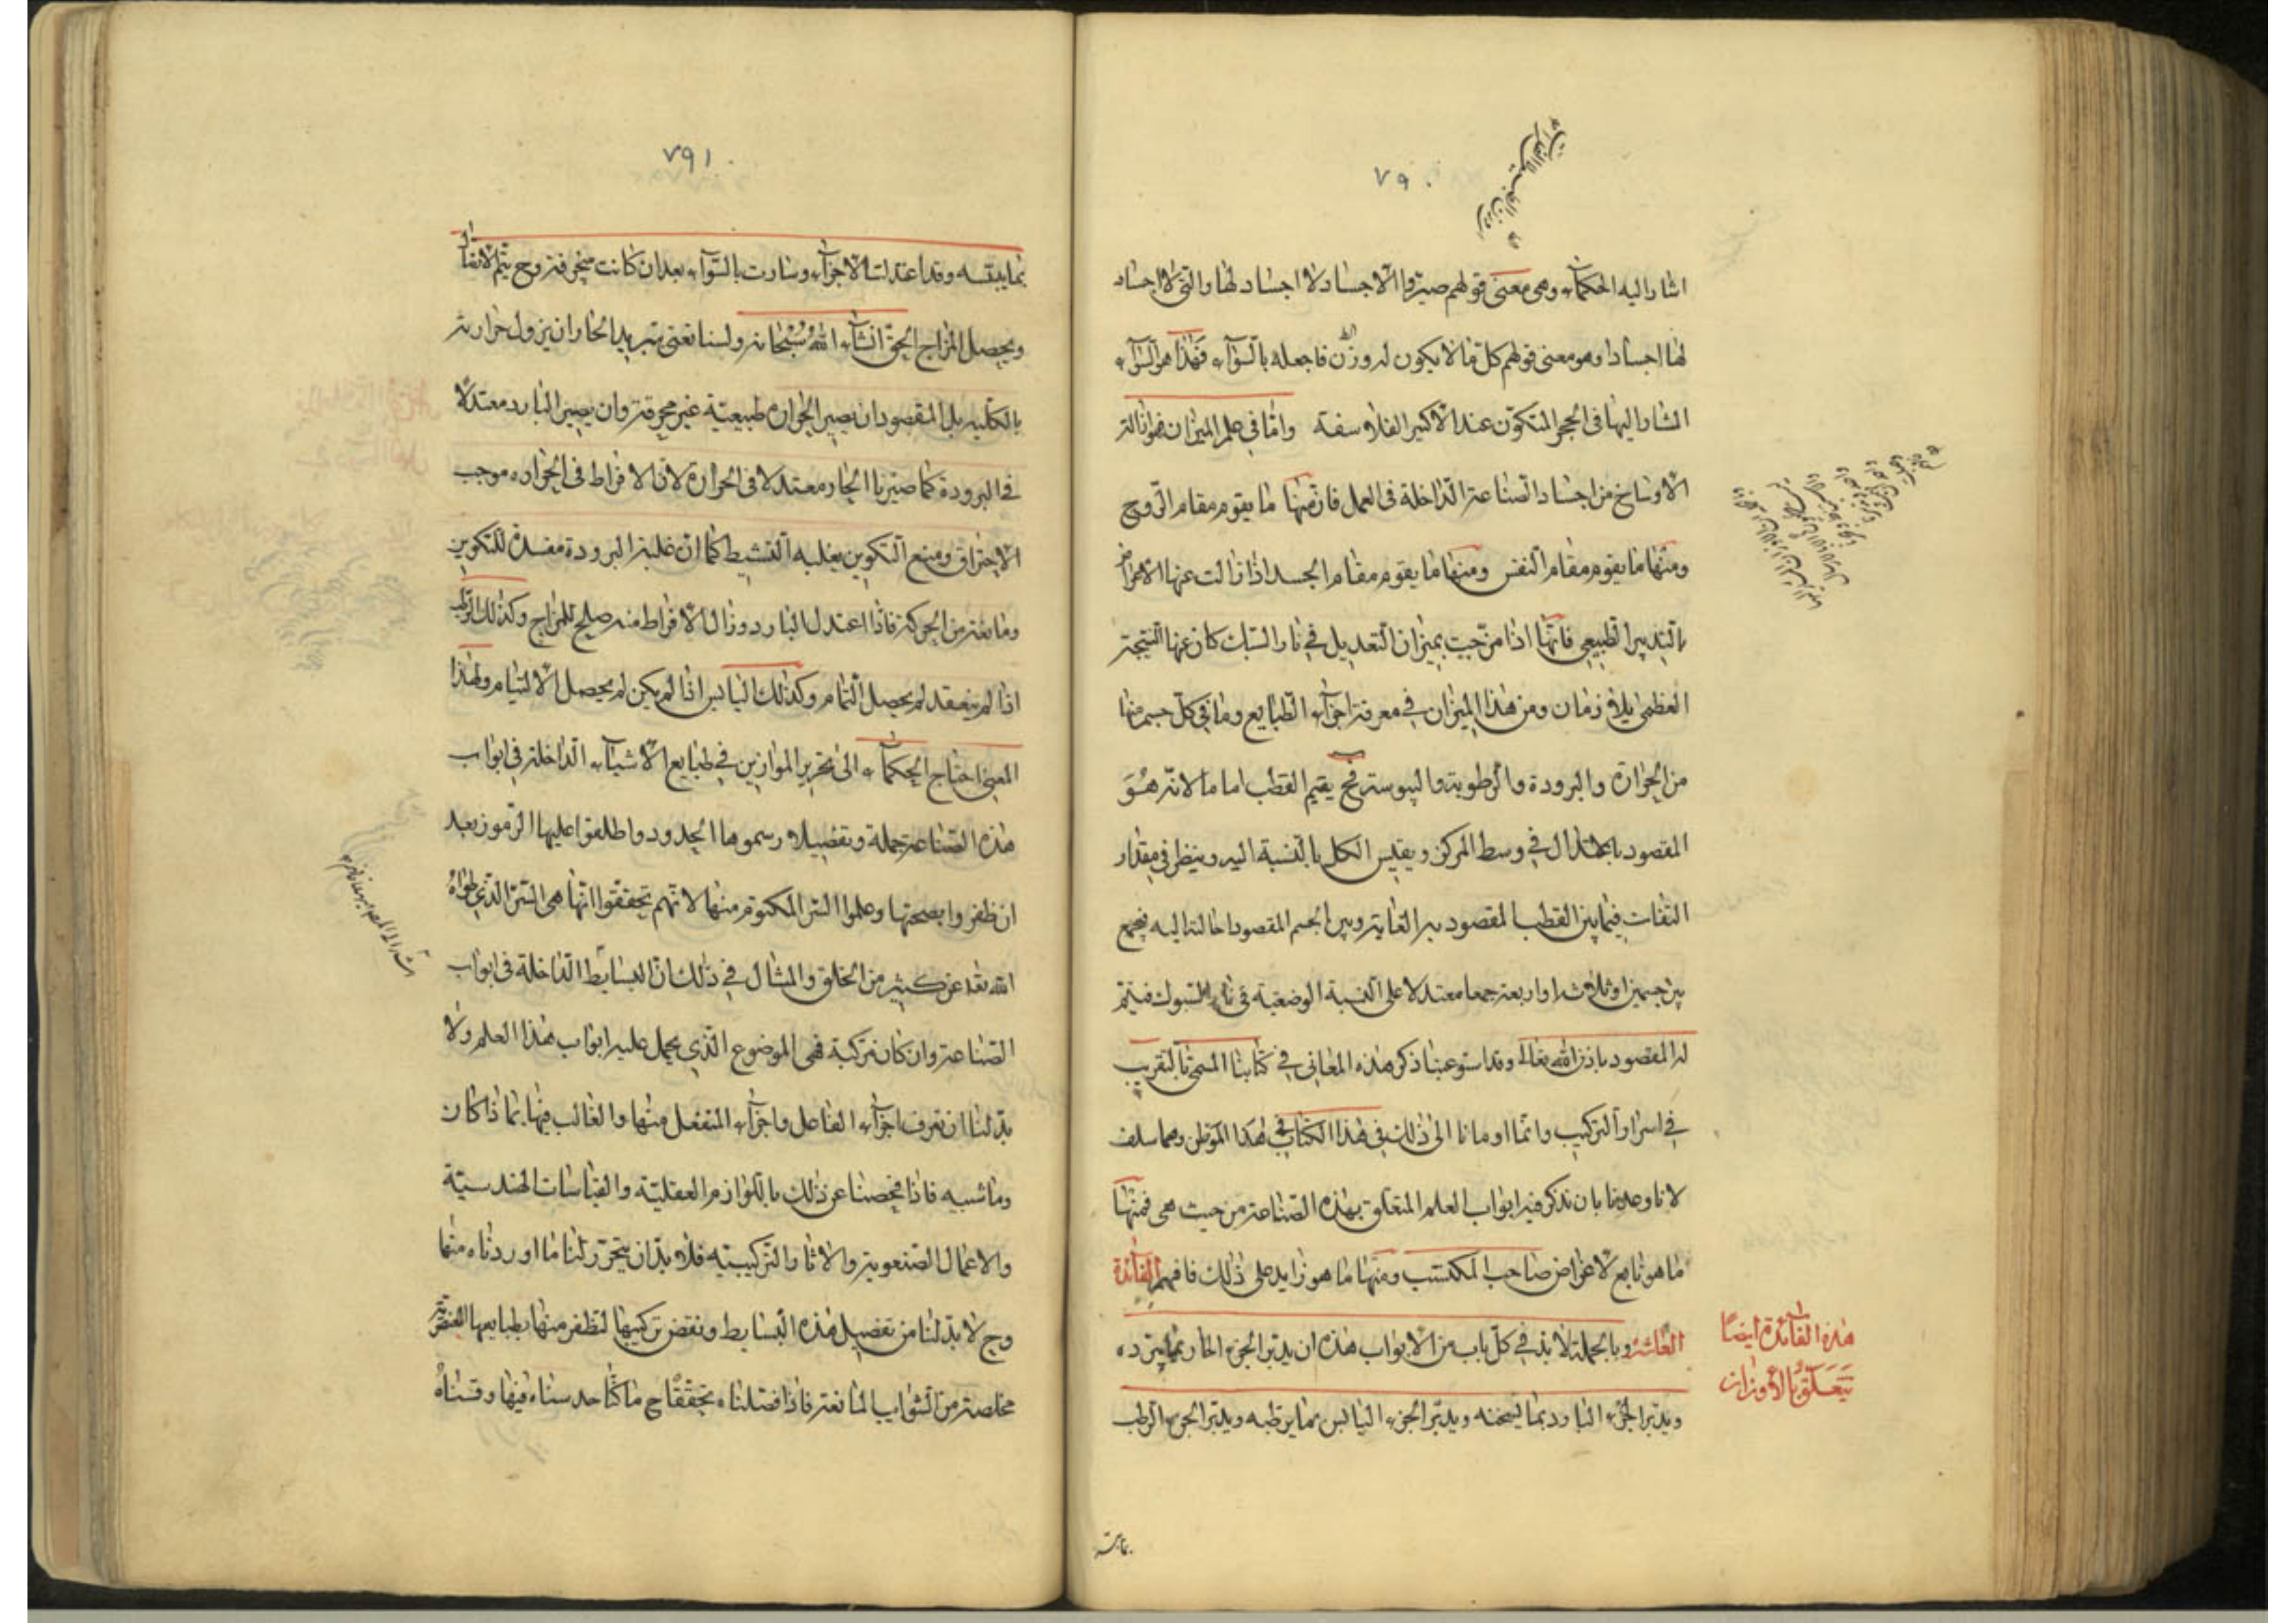 ٧٩٠
اشار اليه الحكماء وهى معنى قولهم صيروا الاجساد لا اجساد لها والتى لا اجساد
لها اجسادا وهو معنى قولهم كل ما لا يكون له وزن فاجعله بالسواء فهذا هو السواء
المشار اليها فى الحجر المتكون عند الاكبر الفلاسفة واما فى علم الميزان فهو ازالة
الاوساخ من اجساد الصناعة الداخلة فى العمل فان منها ما يقوم مقام الروح
ومنها ما يقوم مقام النفس ومنها ما يقوم مقام الجسد اذا زالت عنها الاعراض
بالتدبير الطبيعى فانها اذا مزجت بميزان التعديل فى نار السبك كان عنها النتيجة
العظمى بلا زمان ومن هذا الميزان فى معرفة اجزاء الطبايع وما فى كل جسم منها
من الحرارة والبرودة والرطوبة واليبوسة فح يقيم القطب اماما لانه هو
المقصود بالاعتدال فى وسط المركز ويقيس الكل بالنسبة اليه وينظر فى مقدار
التفات فيما بين القطب المقصود به الغاية وبين الجسم المقصود احالته اليه فيجمع
بين جسمين او ثلاثة او اربعة جمعا معتدلا على النسبة الوضعية فى نار السبوك فيتم
له المقصود باذن الله تعالى وقد استوعبنا ذكر هذه المعانى فى كتابنا المسمى بالتقريب
فى اسرار التركيب وانما اومانا الى ذلك فى هذا الكتاب فى هذا الموطن ومما سلف
لانا وعدنا بان نذكر فيه ابواب العلم المتعلق بهذه الصناعة من حيث هى فمنها
ما هو تابع لاغراض صاحب المكتسب ومنها ما هو زايد على ذلك فافهم الفائدة
العاشرة وبالجملة لا بد فى كل باب من الابواب هذه ان يدبر الجزء الحار بما يبرده
ويدبر الجزء البارد بما يسخنه ويدبر الجزء اليابس بما يرطبه ويدبر الجزء الرطب
هذه الفائدة ايضا
يتعلق بالأوزان
٧٩١
بما ييبسه وقد اعتدلت الاجزاء وسارت بالسواء بعد ان كانت منحرفة وح يتم الاتحاد
ويحصل المزاج الحق انشاء الله سبحانه ولسنا نعنى بتبريد الحار ان يزول حرارته
بالكلية بل المقصود ان يصير الحرارة طبيعية غير محرقة وان يصير البارد معتدلا
فى البرودة كما صيرنا الحار معتدلا فى الحرارة لان الافراط فى الحرارة موجب
الاحتراق ومنع التكوين بغلبه التنشيط كما ان غلبة البرودة مفسدة للتكوين
ومانعة من الحركة فاذا اعتدل البارد وزال الافراط منه صلح للمزاج وكذلك الرطب
اذا لم ينعقد لم يحصل التمام وكذلك اليابس اذا لم يكن لم يحصل الالتيام ولهذا
المعنى احتاج الحكماء الى تحرير الموازين فى طبايع الاشياء الداخلة فى ابواب
هذه الصناعة جملة وتفصيلا ورسموها الحدود واطلقوا عليها الرموز بعد
ان ظفروا بصحتها وعلموا السر المكتوم منها لانهم تحققوا انها هى السر الذى طواه
الله تعه عن كثير من الخلق والمثال فى ذلك ان البسايط الداخلة فى ابواب
الصناعة وان كان مركبة فهى الموضوع الذى يحمل عليه ابواب هذا العلم ولا
بد لنا ان نعرف اجزاء الفاعل واجزاء المنفعل منها والغالب فيها بما ذا كان
وما شبيه فاذا فحصنا عن ذلك باللوازم العقلية والقياسات الهندسية
والاعمال الصنعوية والاثار التركيبيه فلا بد ان يتحرر لنا ما اوردناه منها
وح لا بد لنا من تفصيل هذه البسايط ونقض تركيبها لنظفر منها بطبايعها العنصرية
مخلصة من الشوايب المانعة فاذا فصلناه تحققنا ح ما كنا حدسناه فيها وقسناه